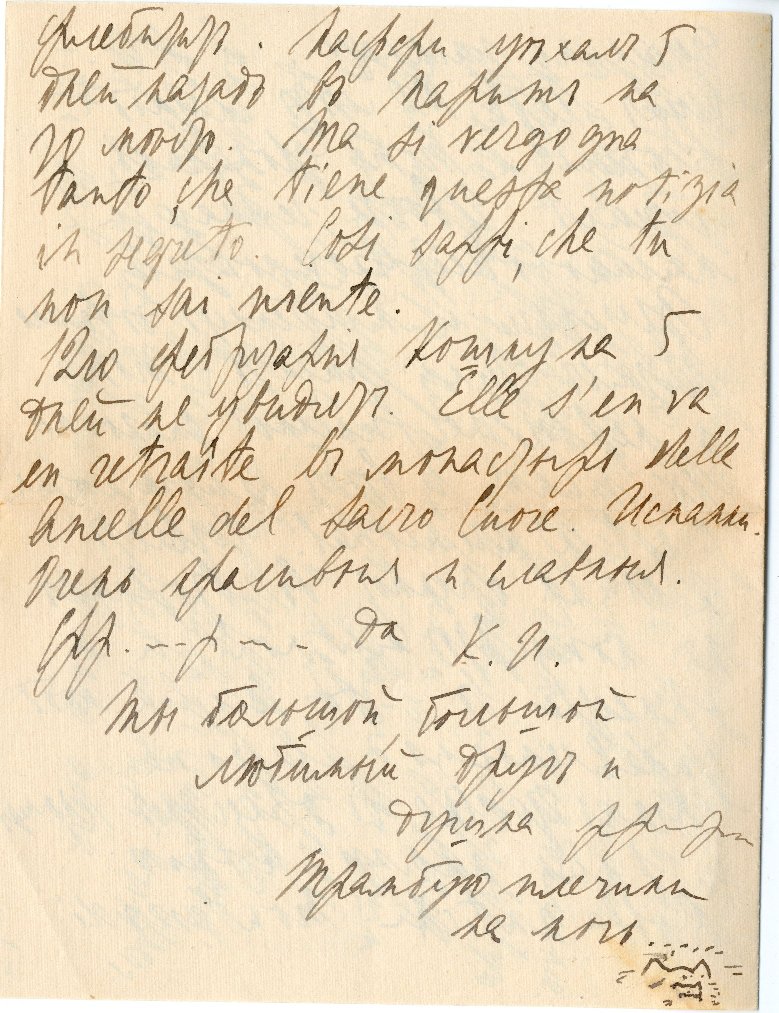 флебитъ. Касфери уѣхалъ 5
дней назадъ въ Парижъ на
Ma si vergogna
tanto, che tiene questa notizia
in segreto. Così sappi, che tu
non sai niente.
12го февруария Кошку на 5
дней не увидятъ. Elle s'en va
en retraite въ монастырь delle
Ancelle del Sacro Cuore. Испанки.
Очень красивыя и славныя.
да К. И.
Ты большой, большой
любимый другъ и
душка
Трамбую плечики
на ночь.